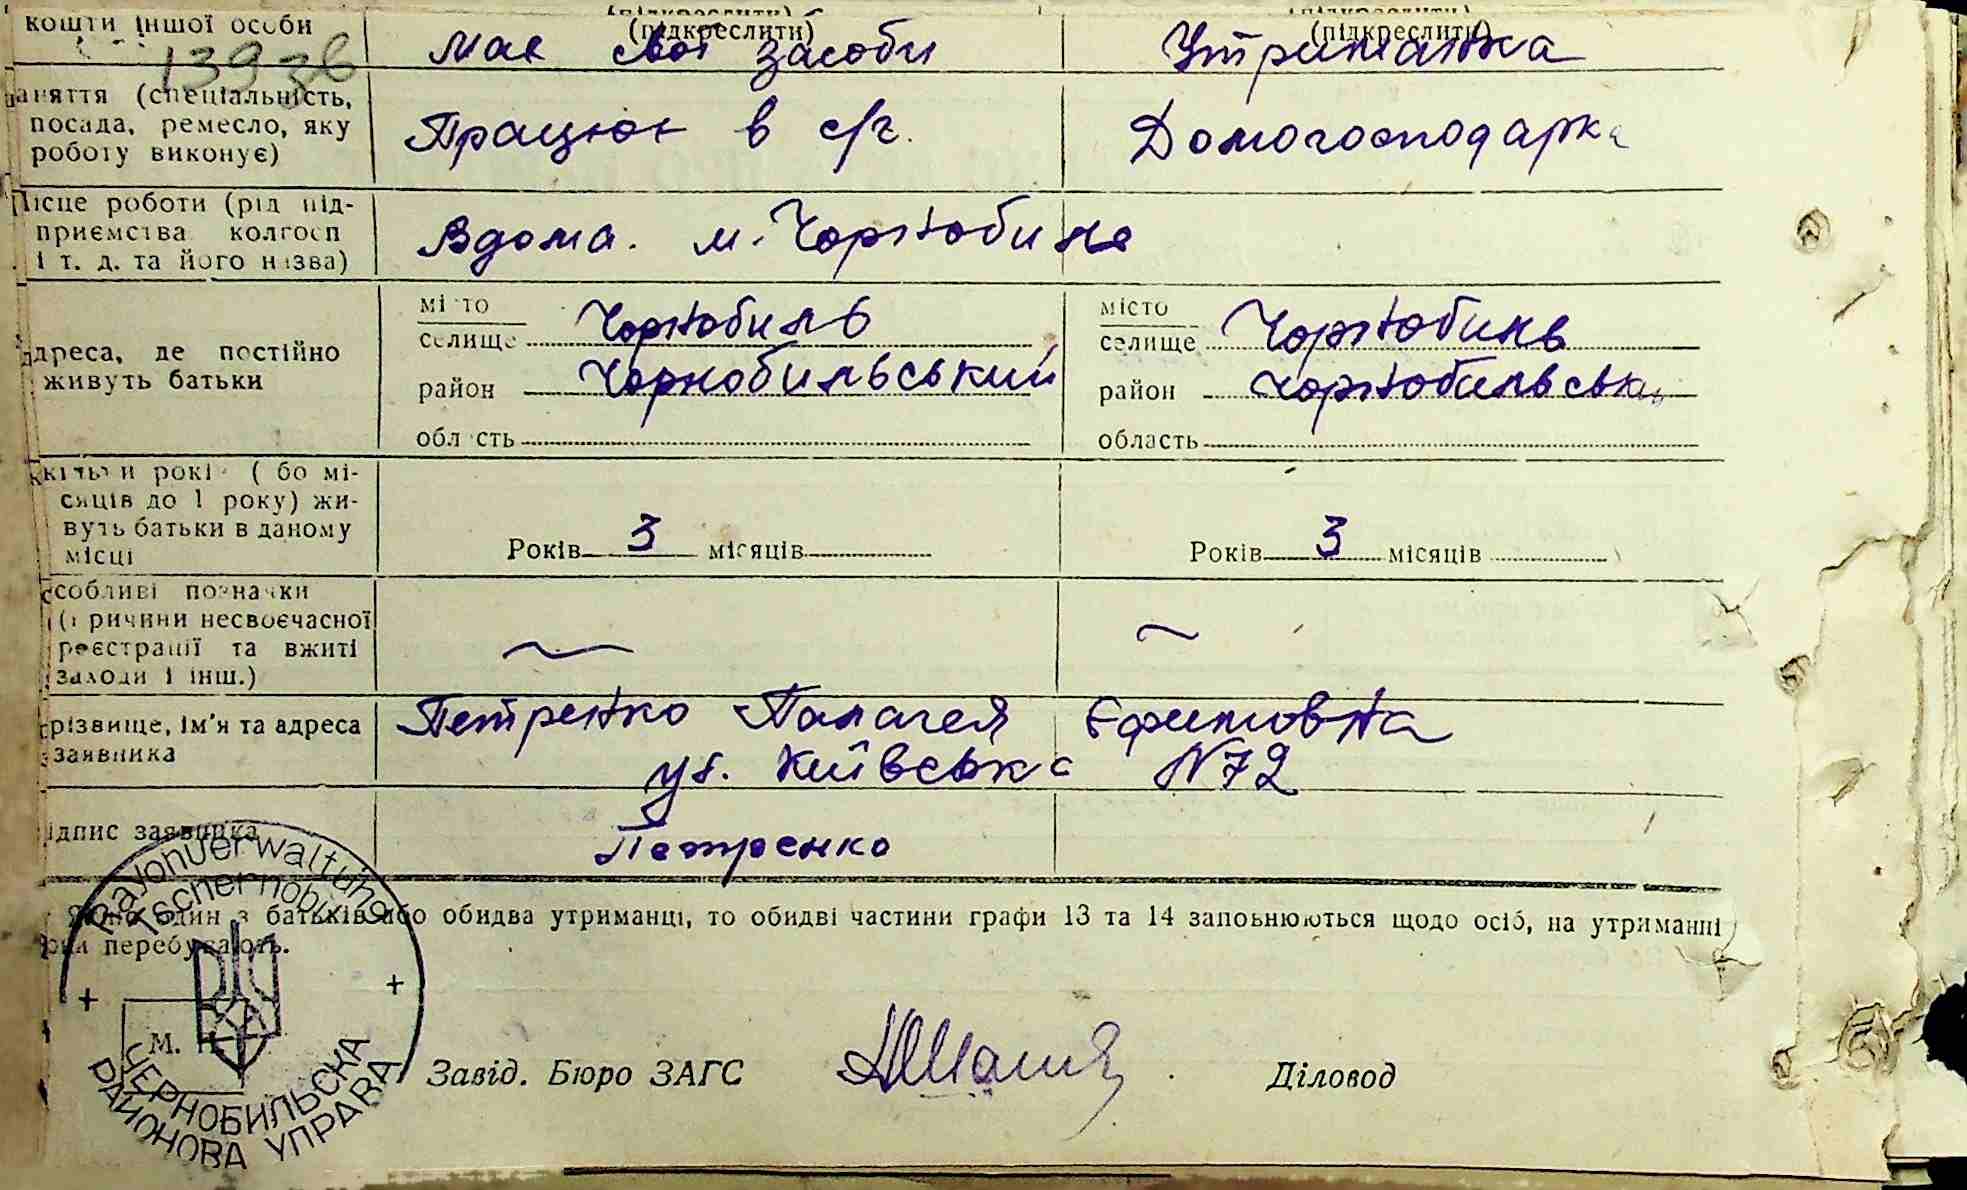 (підкреслити) (підкреслити)
кошти іншої особи має свої засоби Утриманка
заняття (спеціальність,
посада, ремесло, яку Працює в с/г. Домогосподарка
роботу виконує)
Місце роботи (рід під-
приємства колгосп Вдома. м. Чорнобиль
і т. д. та його назва)
місто місто
селище Чорнобиль селище Чорнобиль
Адреса, де постійно
живуть батьки район Чорнобильський район Чорнобильськ
область область
Скільки років (або мі-
сяців до 1 року) жи-
вуть батьки в даному
місці Років 3 місяців Років 3 місяців
Особливі позначки
(причини несвоєчасної
реєстрації та вжиті
заходи і інш.)
Прізвище, ім'я та адреса Петренко Палагея Єфимовна
заявника ул. Київська N72
Підпис заявника Петренко
Якщо один з батьків або обидва утриманці, то обидві частини графи 13 та 14 заповнюються щодо осіб, на утриманні
яких перебувають.
Rajonverwaltung
Tschernobyl
М. П.
ЧЕРНОБИЛЬСКА
РАЙОНОВА УПРАВА
Завід. Бюро ЗАГС Діловод